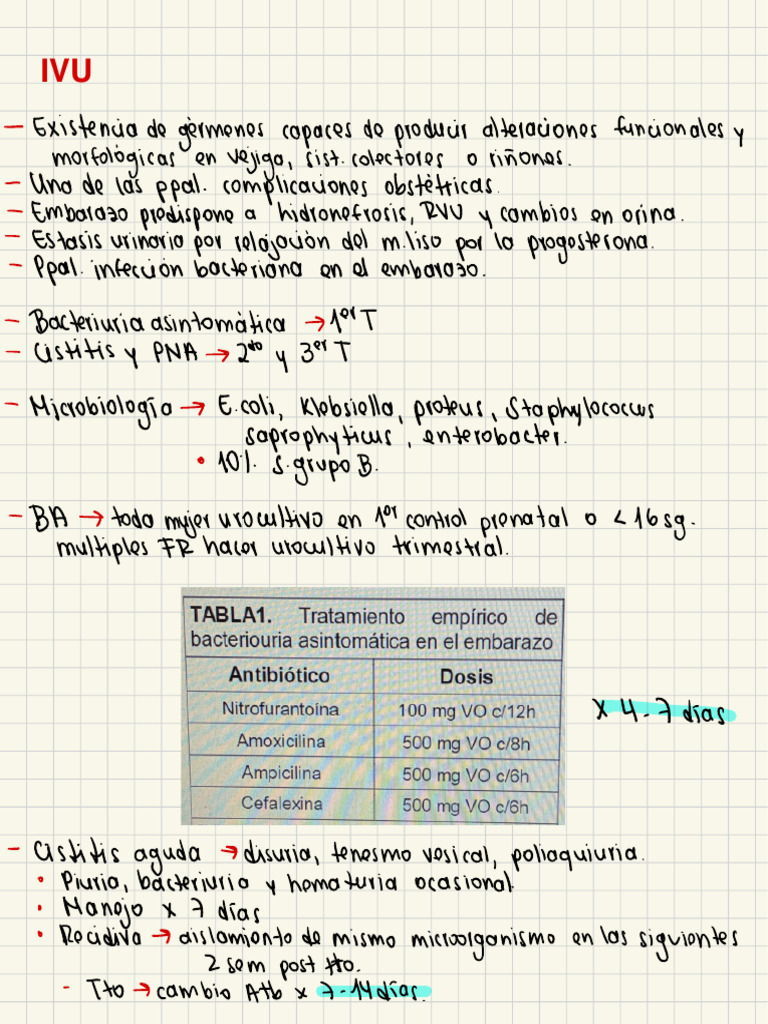 IVU
— Existencia de gérmenes capaces de producir alteraciones funcionales y
morfológicas en vejiga, sist. colectores o riñones.
— Una de las ppal. complicaciones obstétricas.
— Embarazo predispone a hidronefrosis, RVU y cambios en orina.
— Estasis urinario por relajación del m. liso por la progesterona.
— Ppal. infección bacteriana en el embarazo.
— Bacteriuria asintomática → 1er T
— Cistitis y PNA → 2do y 3er T
— Microbiología → E. coli, Klebsiella, proteus, Staphylococcus
saprophyticus, enterobacter.
• 10%. S. grupo B.
— BA → toda mujer urocultivo en 1er control prenatal o < 16 sg.
multiples FR hacer urocultivo trimestral.
TABLA1. Tratamiento empírico de
bacteriouria asintomática en el embarazo
Antibiótico Dosis
Nitrofurantoína 100 mg VO c/12h
Amoxicilina 500 mg VO c/8h
Ampicilina 500 mg VO c/6h
Cefalexina 500 mg VO c/6h
x 4 - 7 días
— Cistitis aguda → disuria, tenesmo vesical, poliaquiuria.
• Piuria, bacteriuria y hematuria ocasional.
• Manejo x 7 días
• Recidiva → aislamiento de mismo microorganismo en las siguientes
2 sem post tto.
- Tto → cambio Atb x 7 - 14 días.